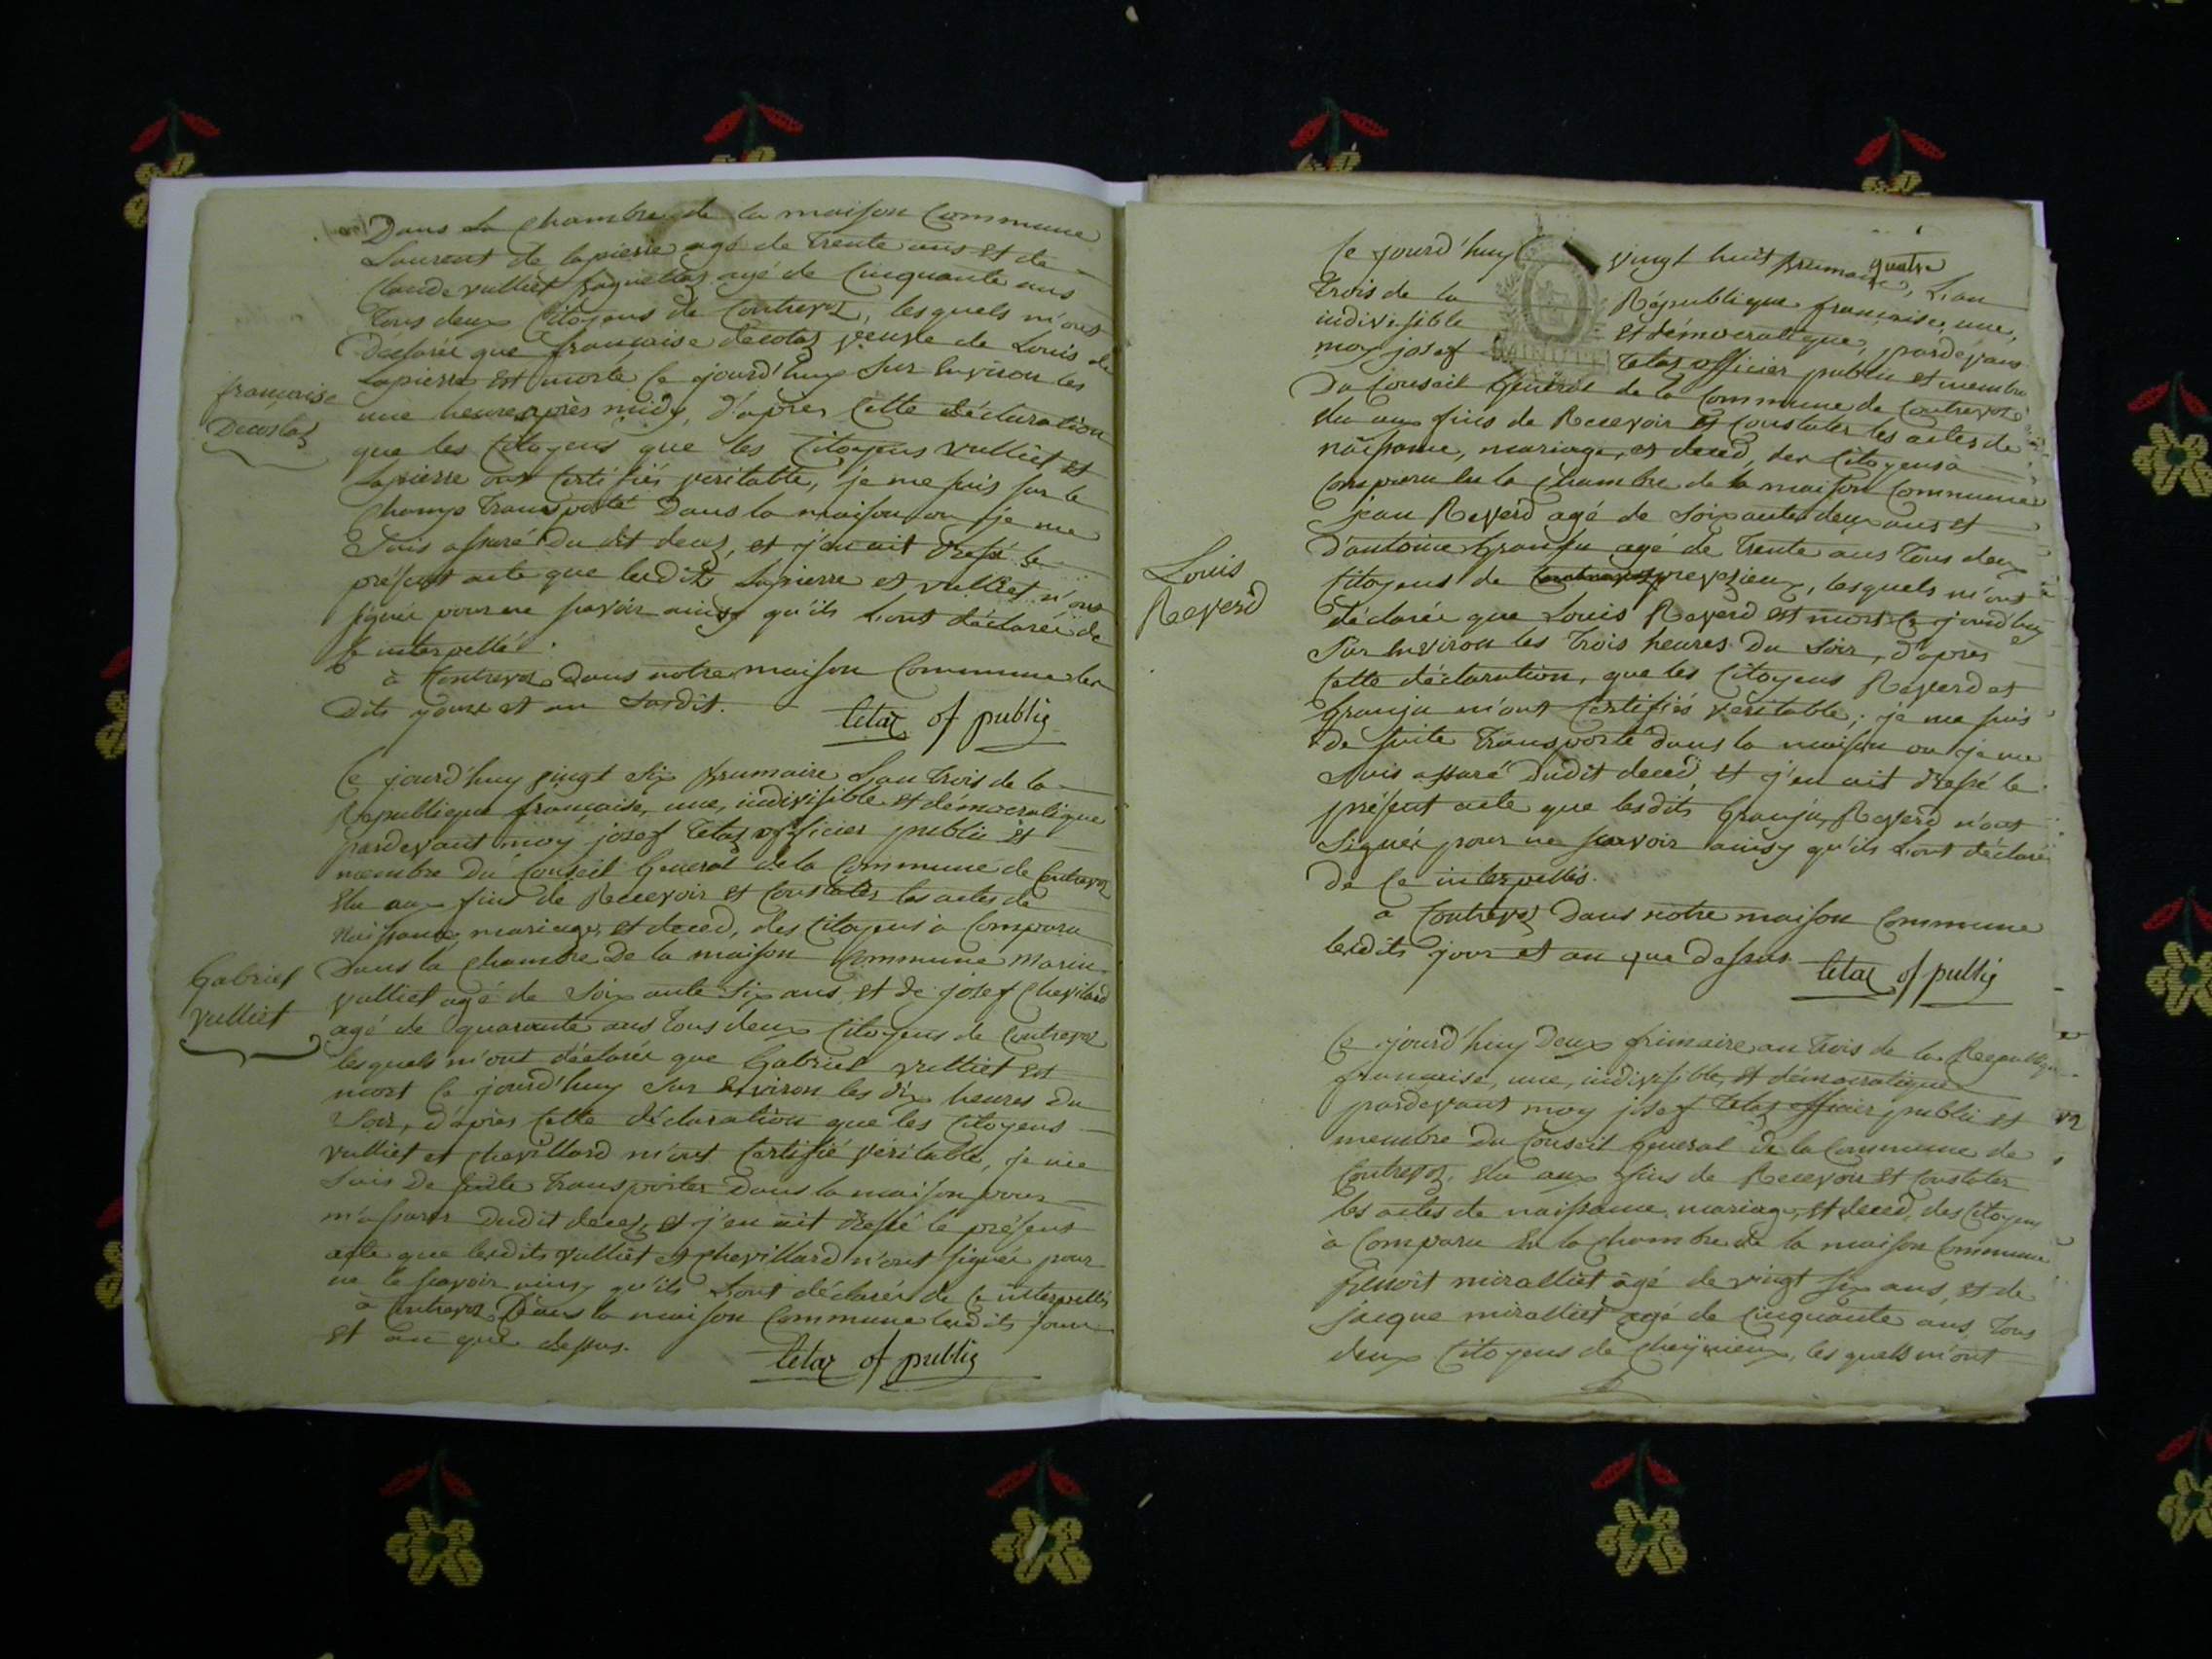 Dans la chambre de la maison Commune
Laurent de lapierre agé de trente ans et de
Claude vulliet agé de Cinquante ans
tous deux Citoyens de Contrevoz, lesquels m'ont
déclarée que françoise decotaz veuve de Louis de
Lapierre est morte ce jourd'huy sur environ les
françoise
Decostaz
une heure après midy, d'après cette déclaration
que les Citoyens que les Citoyens vulliet et
Lapierre ont certifiés veritable, je me suis sur le
champ transporté dans la maison ou je me
suis assuré du dit decez, et j'en ait dressé le
présent acte que lesdits Lapierre et vulliet n'ont
signée pour ne savoir ainsy qu'ils l'ont déclarée de
ce interpellé.
à Contrevoz dans notre maison Commune les
dits jour et an susdit.
tetaz of public
Ce jourd'huy vingt six brumaire l'an trois de la
République françoise, une, indivisible et démocratique
pardevant moy josef tetaz officier public et
membre du Conseil General de la Commune de Contrevoz
élu aux fins de Recevoir et Constater les actes de
naissance, mariage, et deced, des Citoyens à Comparu
Gabriel
vulliet
dans la chambre de la maison Commune Marin
vulliet agé de soixante six ans et de josef chevillard
agé de quarante ans tous deux Citoyens de Contrevoz
lesquels m'ont déclarée que Gabriel vulliet est
mort ce jourd'huy sur environ les dix heures du
soir, d'après cette déclaration que les Citoyens
vulliet et chevillard m'ont certifié véritable, je me
suis de suite transporter dans la maison pour
m'assurer dudit decez, et j'en ait dressé le présent
acte que lesdits vulliet et chevillard n'ont signée pour
ne le savoir ainsy qu'ils l'ont déclarée de ce interpellés
à Contrevoz dans la maison Commune lesdits jour
et an que dessus.
tetaz of public
Ce jourd'huy vingt huit brumaire, l'an
quatre
trois de la République françoise, une,
indivisible et démocratique, pardevant
moy josef tetaz officier public et membre
MINUTE
Du Conseil Général de la Commune de Contrevoz
élu aux fins de Recevoir et Constater les actes de
naissance, mariage, et deced, des Citoyens à
Comparu en la chambre de la maison Commune
jean Reverd agé de soixante deux ans et
d'antoine Granju agé de trente ans tous deux
Louis
Reverd
Citoyens de prevezieux, lesquels m'ont
déclarée que Louis Reverd est mort ce jourd'huy
sur environ les trois heures du soir, d'après
cette déclaration, que les Citoyens Reverd et
Granju m'ont certifiés veritable; je me suis
de suite transporté dans la maison ou je me
suis assuré dudit deced, et j'en ait dressé le
présent acte que lesdits Granju, Reverd n'ont
signée pour ne savoir ainsy qu'ils l'ont déclaré
de ce interpellés.
a Contrevoz dans notre maison Commune
lesdits jour et an que dessus
tetaz of public
Ce jourd'huy deux frimaire an trois de la République
françoise, une, indivisible, et démocratique
pardevant moy josef tetaz officier public et
membre du Conseil General de la Commune de
Contrevoz, élu aux fins de Recevoir et Constater
les actes de naissance, mariage, et deced, des Citoyens
à Comparu en la chambre de la maison Commune
Benoit miralliet âgé de vingt six ans, et de
jacque miralliet agé de Cinquante ans, tous
deux Citoyens de cheynieux, lesquels m'ont